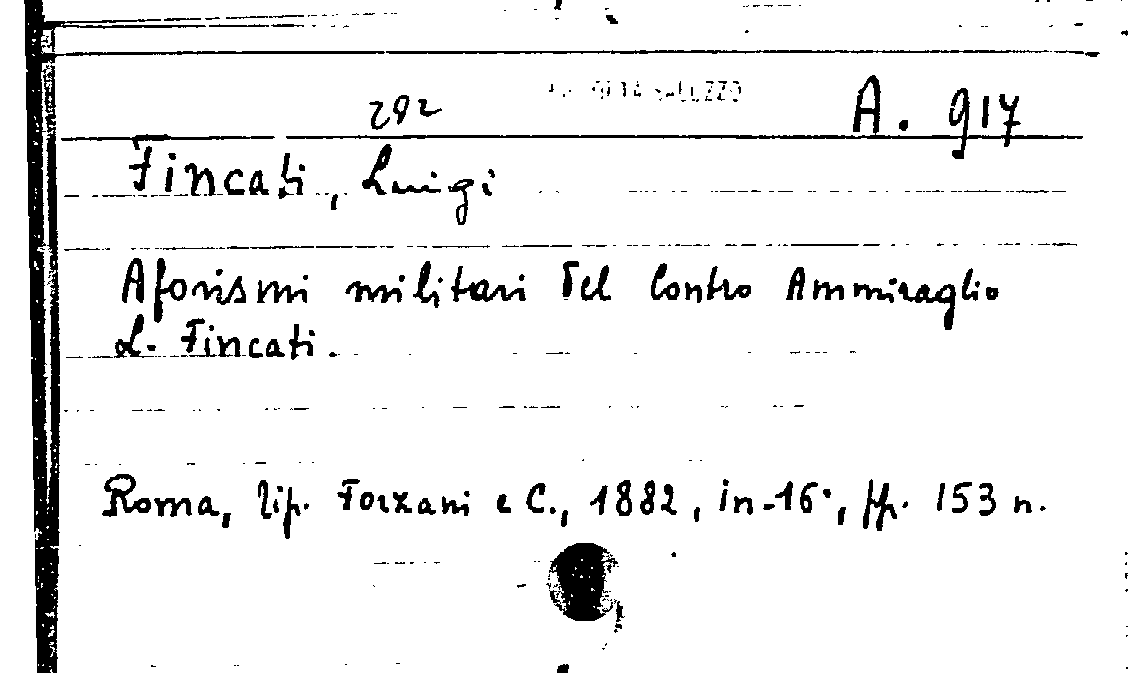 292 A. 917
Fincati, Luigi
Aforismi militari del Contro Ammiraglio
L. Fincati.
Roma, tip. Forzani e C., 1882, in-16°, pp. 153 n.